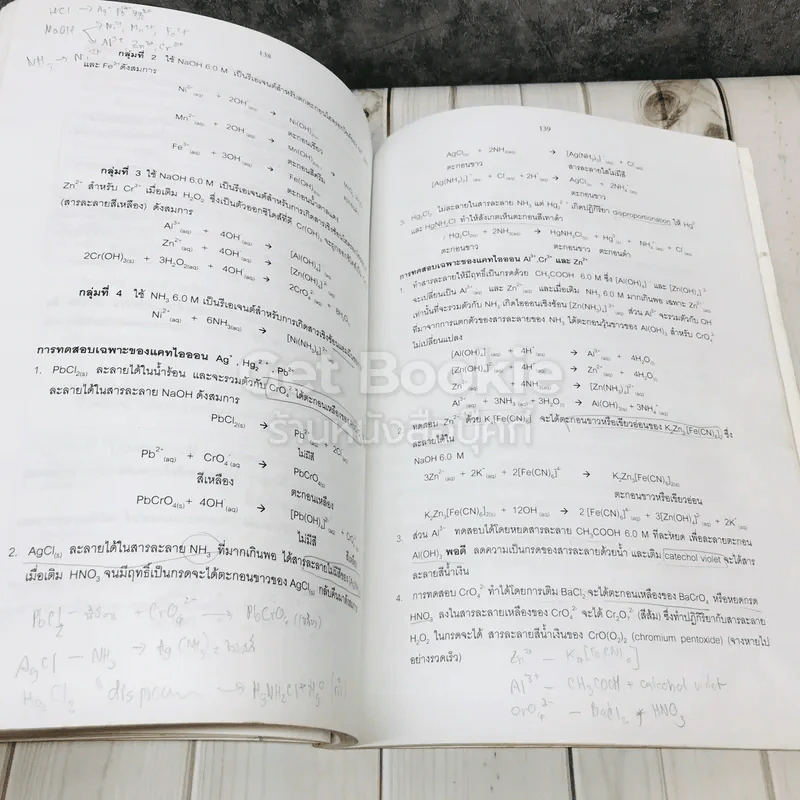 HCl → Ag⁺ Pb²⁺ Hg₂²⁺
NaOH → Ni²⁺, Mn²⁺, Fe³⁺
Al³⁺ Zn²⁺, Cr³⁺
NH₃ → Ni²⁺
138
กลุ่มที่ 2 ใช้ NaOH 6.0 M เป็นรีเอเจนต์สำหรับตกตะกอน
และ Fe³⁺ ดังสมการ
Ni²⁺(aq) + 2OH⁻(aq) → Ni(OH)₂(s)
ตะกอนเขียว
Mn²⁺(aq) + 2OH⁻(aq) → Mn(OH)₂(s)
Fe³⁺(aq) + 3OH⁻(aq) → Fe(OH)₃(s)
ตะกอนน้ำตาลแดง
กลุ่มที่ 3 ใช้ NaOH 6.0 M เป็นรีเอเจนต์สำหรับการเกิดสารเชิงซ้อน
Zn²⁺ สำหรับ Cr³⁺ เมื่อเติม H₂O₂ ซึ่งเป็นตัวออกซิไดส์ที่ดี Cr(OH)₃ จะถูกออกซิไดส์
(สารละลายสีเหลือง) ดังสมการ
Al³⁺(aq) + 4OH⁻(aq) → [Al(OH)₄]⁻(aq)
Zn²⁺(aq) + 4OH⁻(aq) → [Zn(OH)₄]²⁻(aq)
2Cr(OH)₃(s) + 3H₂O₂(aq) + 4OH⁻(aq) → 2CrO₄²⁻(aq) + 8H₂O
กลุ่มที่ 4 ใช้ NH₃ 6.0 M เป็นรีเอเจนต์สำหรับการเกิดสารเชิงซ้อน
Ni²⁺(aq) + 6NH₃(aq) → [Ni(NH₃)₆]²⁺
การทดสอบเฉพาะของแคทไอออน Ag⁺, Hg₂²⁺, Pb²⁺
1. PbCl₂(s) ละลายได้ในน้ำร้อน และจะรวมตัวกับ CrO₄²⁻ ได้ตะกอนเหลืองของ
ละลายได้ในสารละลาย NaOH ดังสมการ
PbCl₂(s) → Pb²⁺(aq) + 2Cl⁻(aq)
ไม่มีสี
Pb²⁺(aq) + CrO₄⁻(aq) → PbCrO₄(s)
สีเหลือง ตะกอนเหลือง
PbCrO₄(s) + 4OH⁻(aq) → [Pb(OH)₄]²⁻(aq) + CrO₄²⁻
ไม่มีสี
2. AgCl(s) ละลายได้ในสารละลาย NH₃ ที่มากเกินพอ ได้สารละลายไม่มีสีของ
เมื่อเติม HNO₃ จนมีฤทธิ์เป็นกรดจะได้ตะกอนขาวของ AgCl(s) กลับคืนมา
PbCl₂ – + CrO₄²⁻ → PbCrO₄
AgCl – NH₃ → Ag(NH₃)₂
Hg₂Cl₂
139
AgCl(s) + 2NH₃(aq) → [Ag(NH₃)₂]⁺(aq) + Cl⁻(aq)
ตะกอนขาว สารละลายใสไม่มีสี
[Ag(NH₃)₂]⁺(aq) + Cl⁻ + 2H⁺(aq) → AgCl(s) + 2NH₄⁺(aq)
ตะกอนขาว
3. Hg₂Cl₂ ไม่ละลายในสารละลาย NH₃ แต่ Hg₂²⁺ เกิดปฏิกิริยา disproportionation ได้ Hg⁰
และ HgNH₂Cl ทำให้สังเกตเห็นตะกอนสีเทาดำ
Hg₂Cl₂(s) + 2NH₃(aq) → HgNH₂Cl(s) + Hg⁰(s) + NH₄⁺(aq) + Cl⁻(aq)
ตะกอนขาว ตะกอนขาว ตะกอนดำ
การทดสอบเฉพาะของแคทไอออน Al³⁺, Cr³⁺ และ Zn²⁺
1. ทำสารละลายให้มีฤทธิ์เป็นกรดด้วย CH₃COOH 6.0 M ซึ่ง [Al(OH)₄]⁻ และ [Zn(OH)₄]²⁻
จะเปลี่ยนเป็น Al³⁺ และ Zn²⁺ และเมื่อเติม NH₃ 6.0 M มากเกินพอ เฉพาะ Zn²⁺
เท่านั้นที่จะรวมตัวกับ NH₃ เกิดไอออนเชิงซ้อน [Zn(NH₃)₄]²⁺ ส่วน Al³⁺ จะรวมตัวกับ OH⁻
ที่มาจากการแตกตัวของสารละลายของ NH₃ ได้ตะกอนวุ้นขาวของ Al(OH)₃ สำหรับ CrO₄²⁻
ไม่เปลี่ยนแปลง
[Al(OH)₄]⁻(aq) + 4H⁺(aq) → Al³⁺(aq) + 4H₂O(l)
[Zn(OH)₄]²⁻(aq) + 4H⁺(aq) → Zn²⁺(aq) + 4H₂O(l)
Zn²⁺(aq) + 4NH₃(aq) → [Zn(NH₃)₄]²⁺
Al³⁺(aq) + 3NH₃(aq) + 3H₂O(l) → Al(OH)₃(s) + 3NH₄⁺(aq)
ทดสอบ Zn²⁺ ด้วย K₄[Fe(CN)₆] จะได้ตะกอนขาวหรือเขียวอ่อนของ K₂Zn₃[Fe(CN)₆]₂ ซึ่ง
ละลายได้ใน
NaOH 6.0 M
3Zn²⁺(aq) + 2K⁺(aq) + 2[Fe(CN)₆]⁴⁻ → K₂Zn₃[Fe(CN)₆]₂(s)
ตะกอนขาวหรือเขียวอ่อน
K₂Zn₃[Fe(CN)₆]₂(s) + 12OH⁻(aq) → 2 [Fe(CN)₆]⁴⁻(aq) + 3[Zn(OH)₄]²⁻(aq) + 2K⁺(aq)
3. ส่วน Al³⁺ ทดสอบได้โดยหยดสารละลาย CH₃COOH 6.0 M ทีละหยด เพื่อละลายตะกอน
Al(OH)₃ พอดี ลดความเป็นกรดของสารละลายด้วยน้ำ และเติม catechol violet จะได้สาร
ละลายสีน้ำเงิน
4. การทดสอบ CrO₄²⁻ ทำได้โดยการเติม BaCl₂ จะได้ตะกอนเหลืองของ BaCrO₄ หรือหยดกรด
HNO₃ ลงในสารละลายเหลืองของ CrO₄²⁻ จะได้ Cr₂O₇²⁻ (สีส้ม) ซึ่งทำปฏิกิริยากับสารละลาย
H₂O₂ ในกรดจะได้ สารละลายสีน้ำเงินของ CrO(O₂)₂ (chromium pentoxide) (จางหายไป
อย่างรวดเร็ว)
Zn²⁺ – K₄[Fe(CN)₆]
Al³⁺ – CH₃COOH + catechol violet
CrO₄²⁻ – BaCl₂ + HNO₃
Get Bookie
ร้านหนังสือบุ๊คกี้